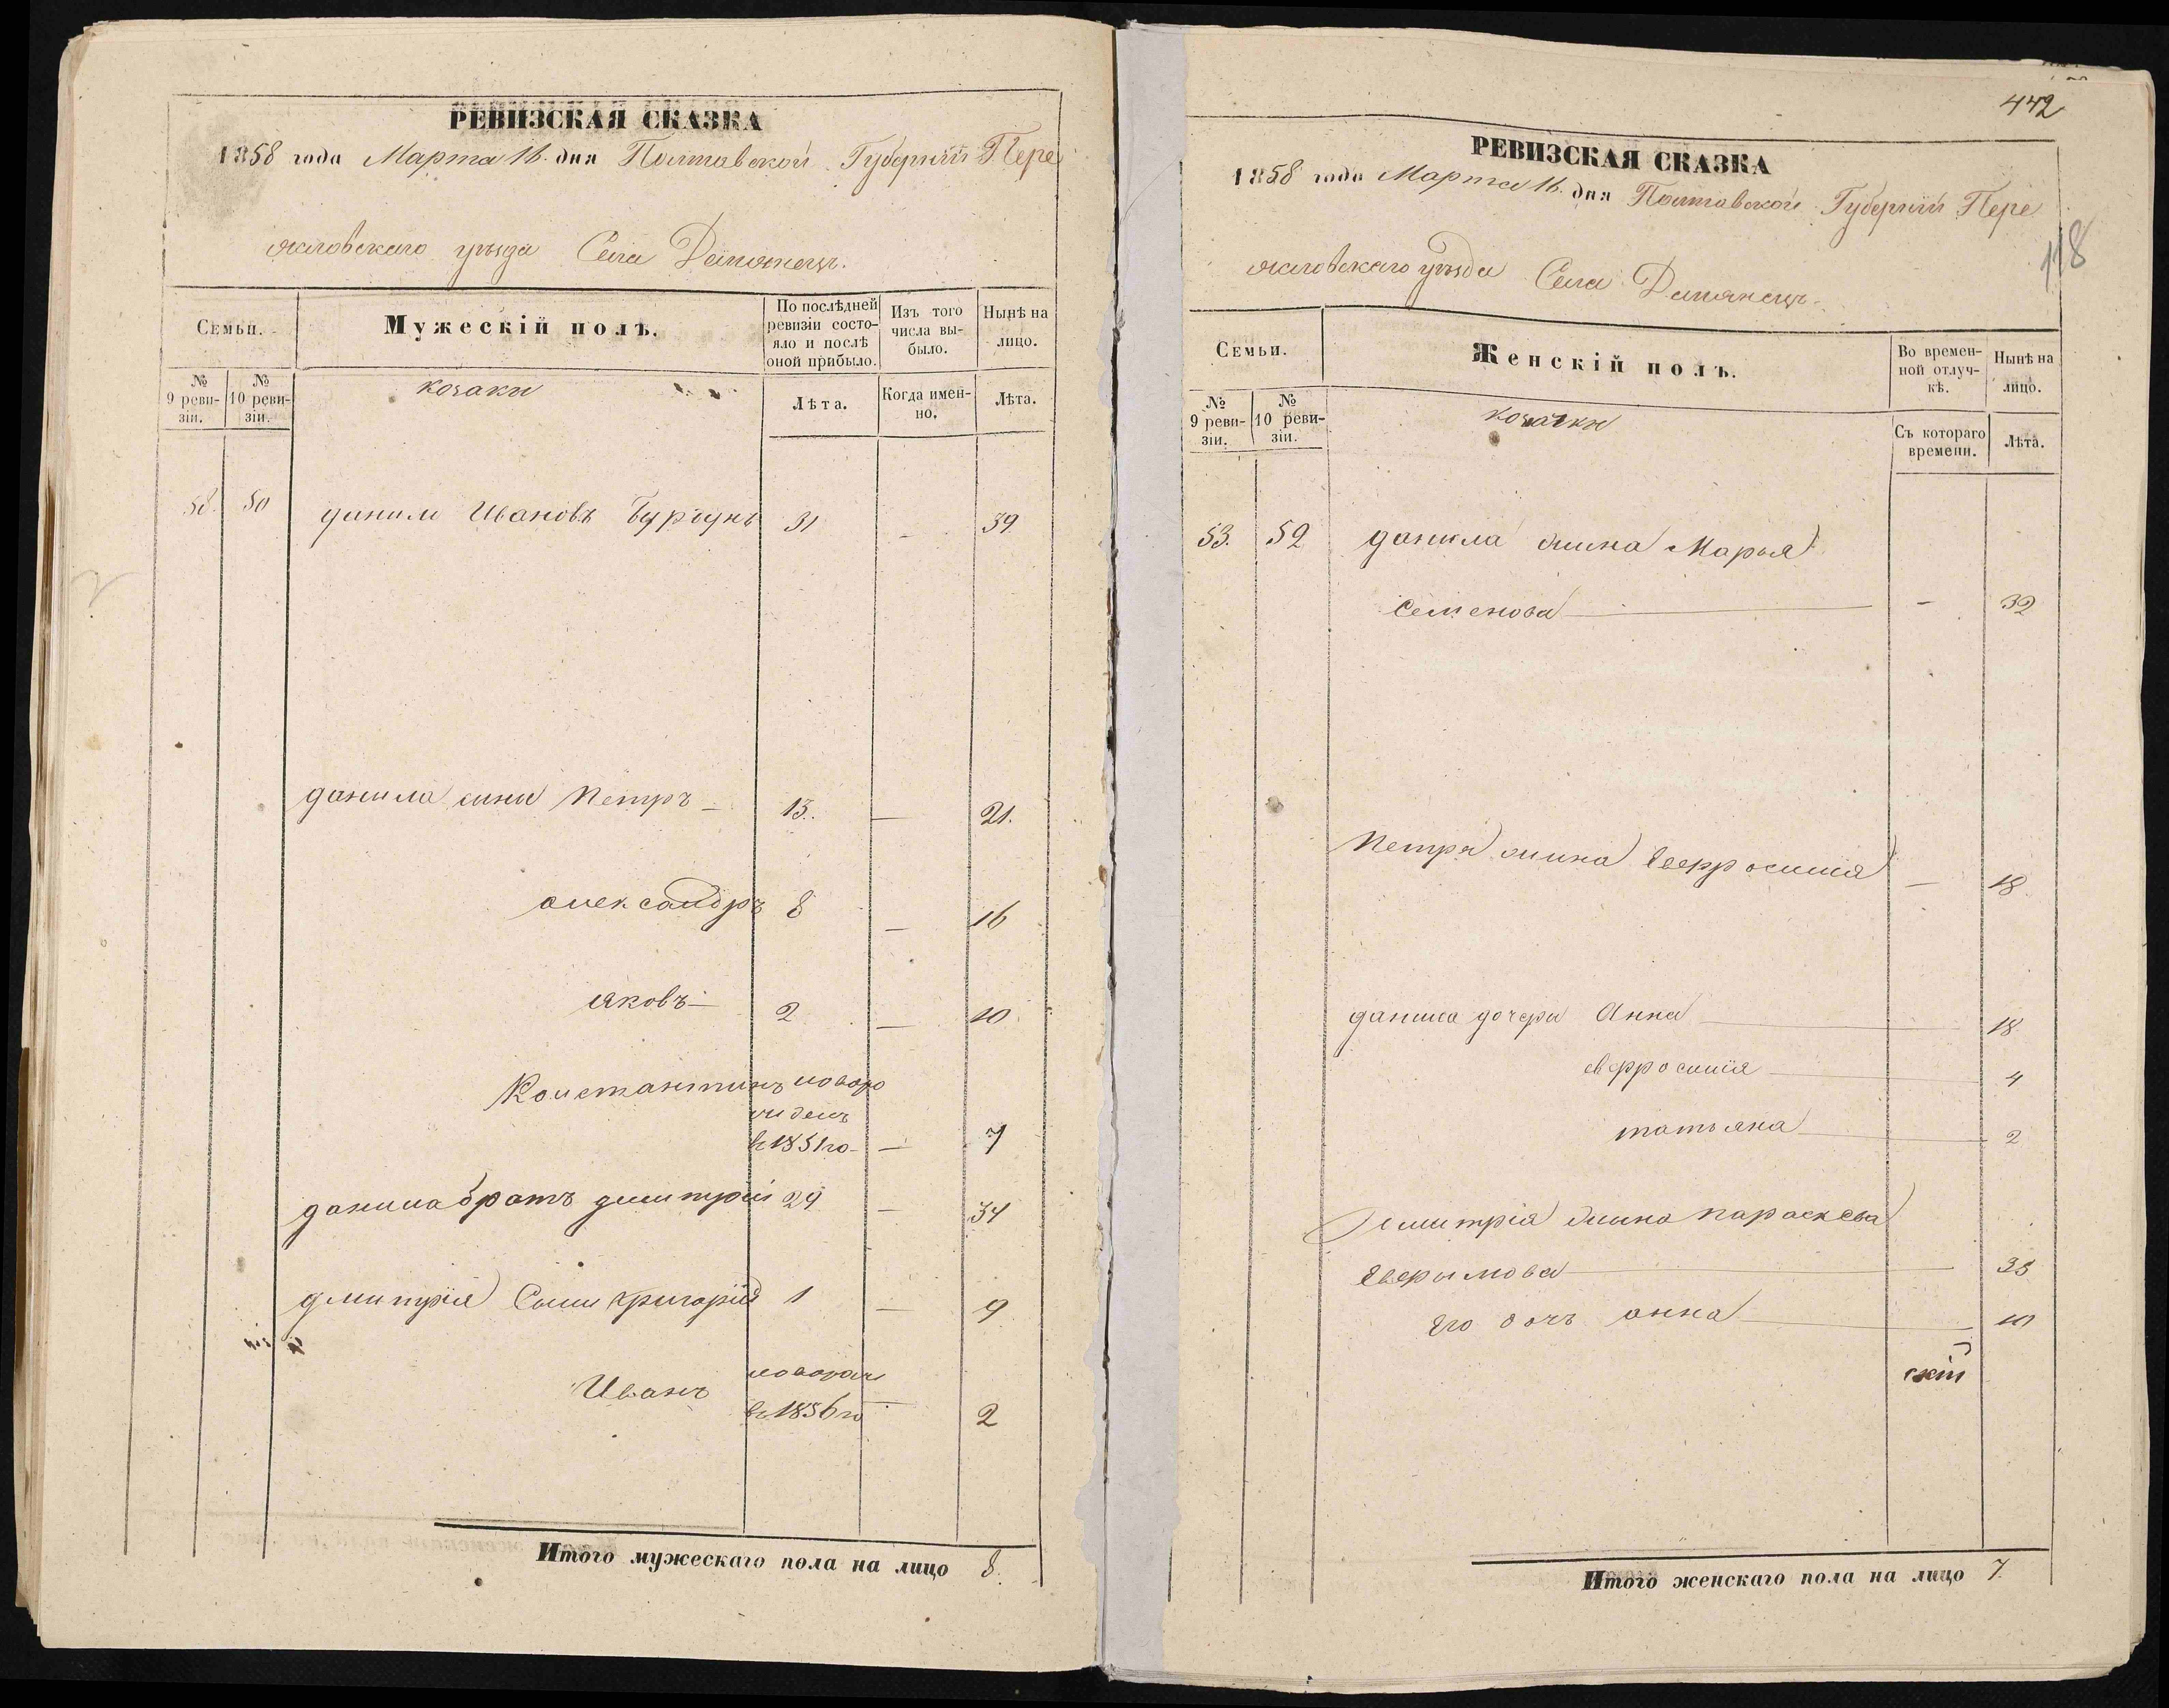 РЕВИЗСКАЯ СКАЗКА
1858 года Марта 16. дня Полтавской Губернии Пере
яславского уезда Села Демянец.
Семьи.
Мужескій полъ.
По послѣдней
ревизіи состо-
яло и послѣ
оной прибыло.
Изъ того
числа вы-
было.
Нынѣ на
лицо.
№
9 реви-
зіи.
№
10 реви-
зіи.
козаки
Лѣта.
Когда имен-
но.
Лѣта.
50 данило Ивановъ 31 - 39
данила сини Петръ - 13. - 21.
александръ 8 - 16
яковъ - 2 - 10
Константинъ новоро
жденъ
в 1851 го - - 7
данила братъ дмитрій - 34
дмитрія Сыни григорій 1 - 9
Иванъ
в 1856 го - 2
Итого мужескаго пола на лицо 8.
442
РЕВИЗСКАЯ СКАЗКА
1858 года Марта 16. дня Полтавской Губерніи Пере
118
яславского уезда Села Демянец.
Семьи.
Женскій полъ.
Во времен-
ной отлуч-
кѣ.
Нынѣ на
лицо.
№
9 реви-
зіи.
№
10 реви-
зіи.
козачки
Съ котораго
времени.
Лѣта.
53. данила жина Марья
Семенова - 32
Петра жина Евфросинія - 18
данила дочери Анна 18
евфросинія 4
татьяна 2
Дмитрія жина параскева
его дочь анна
Итого женскаго пола на лицо 7.